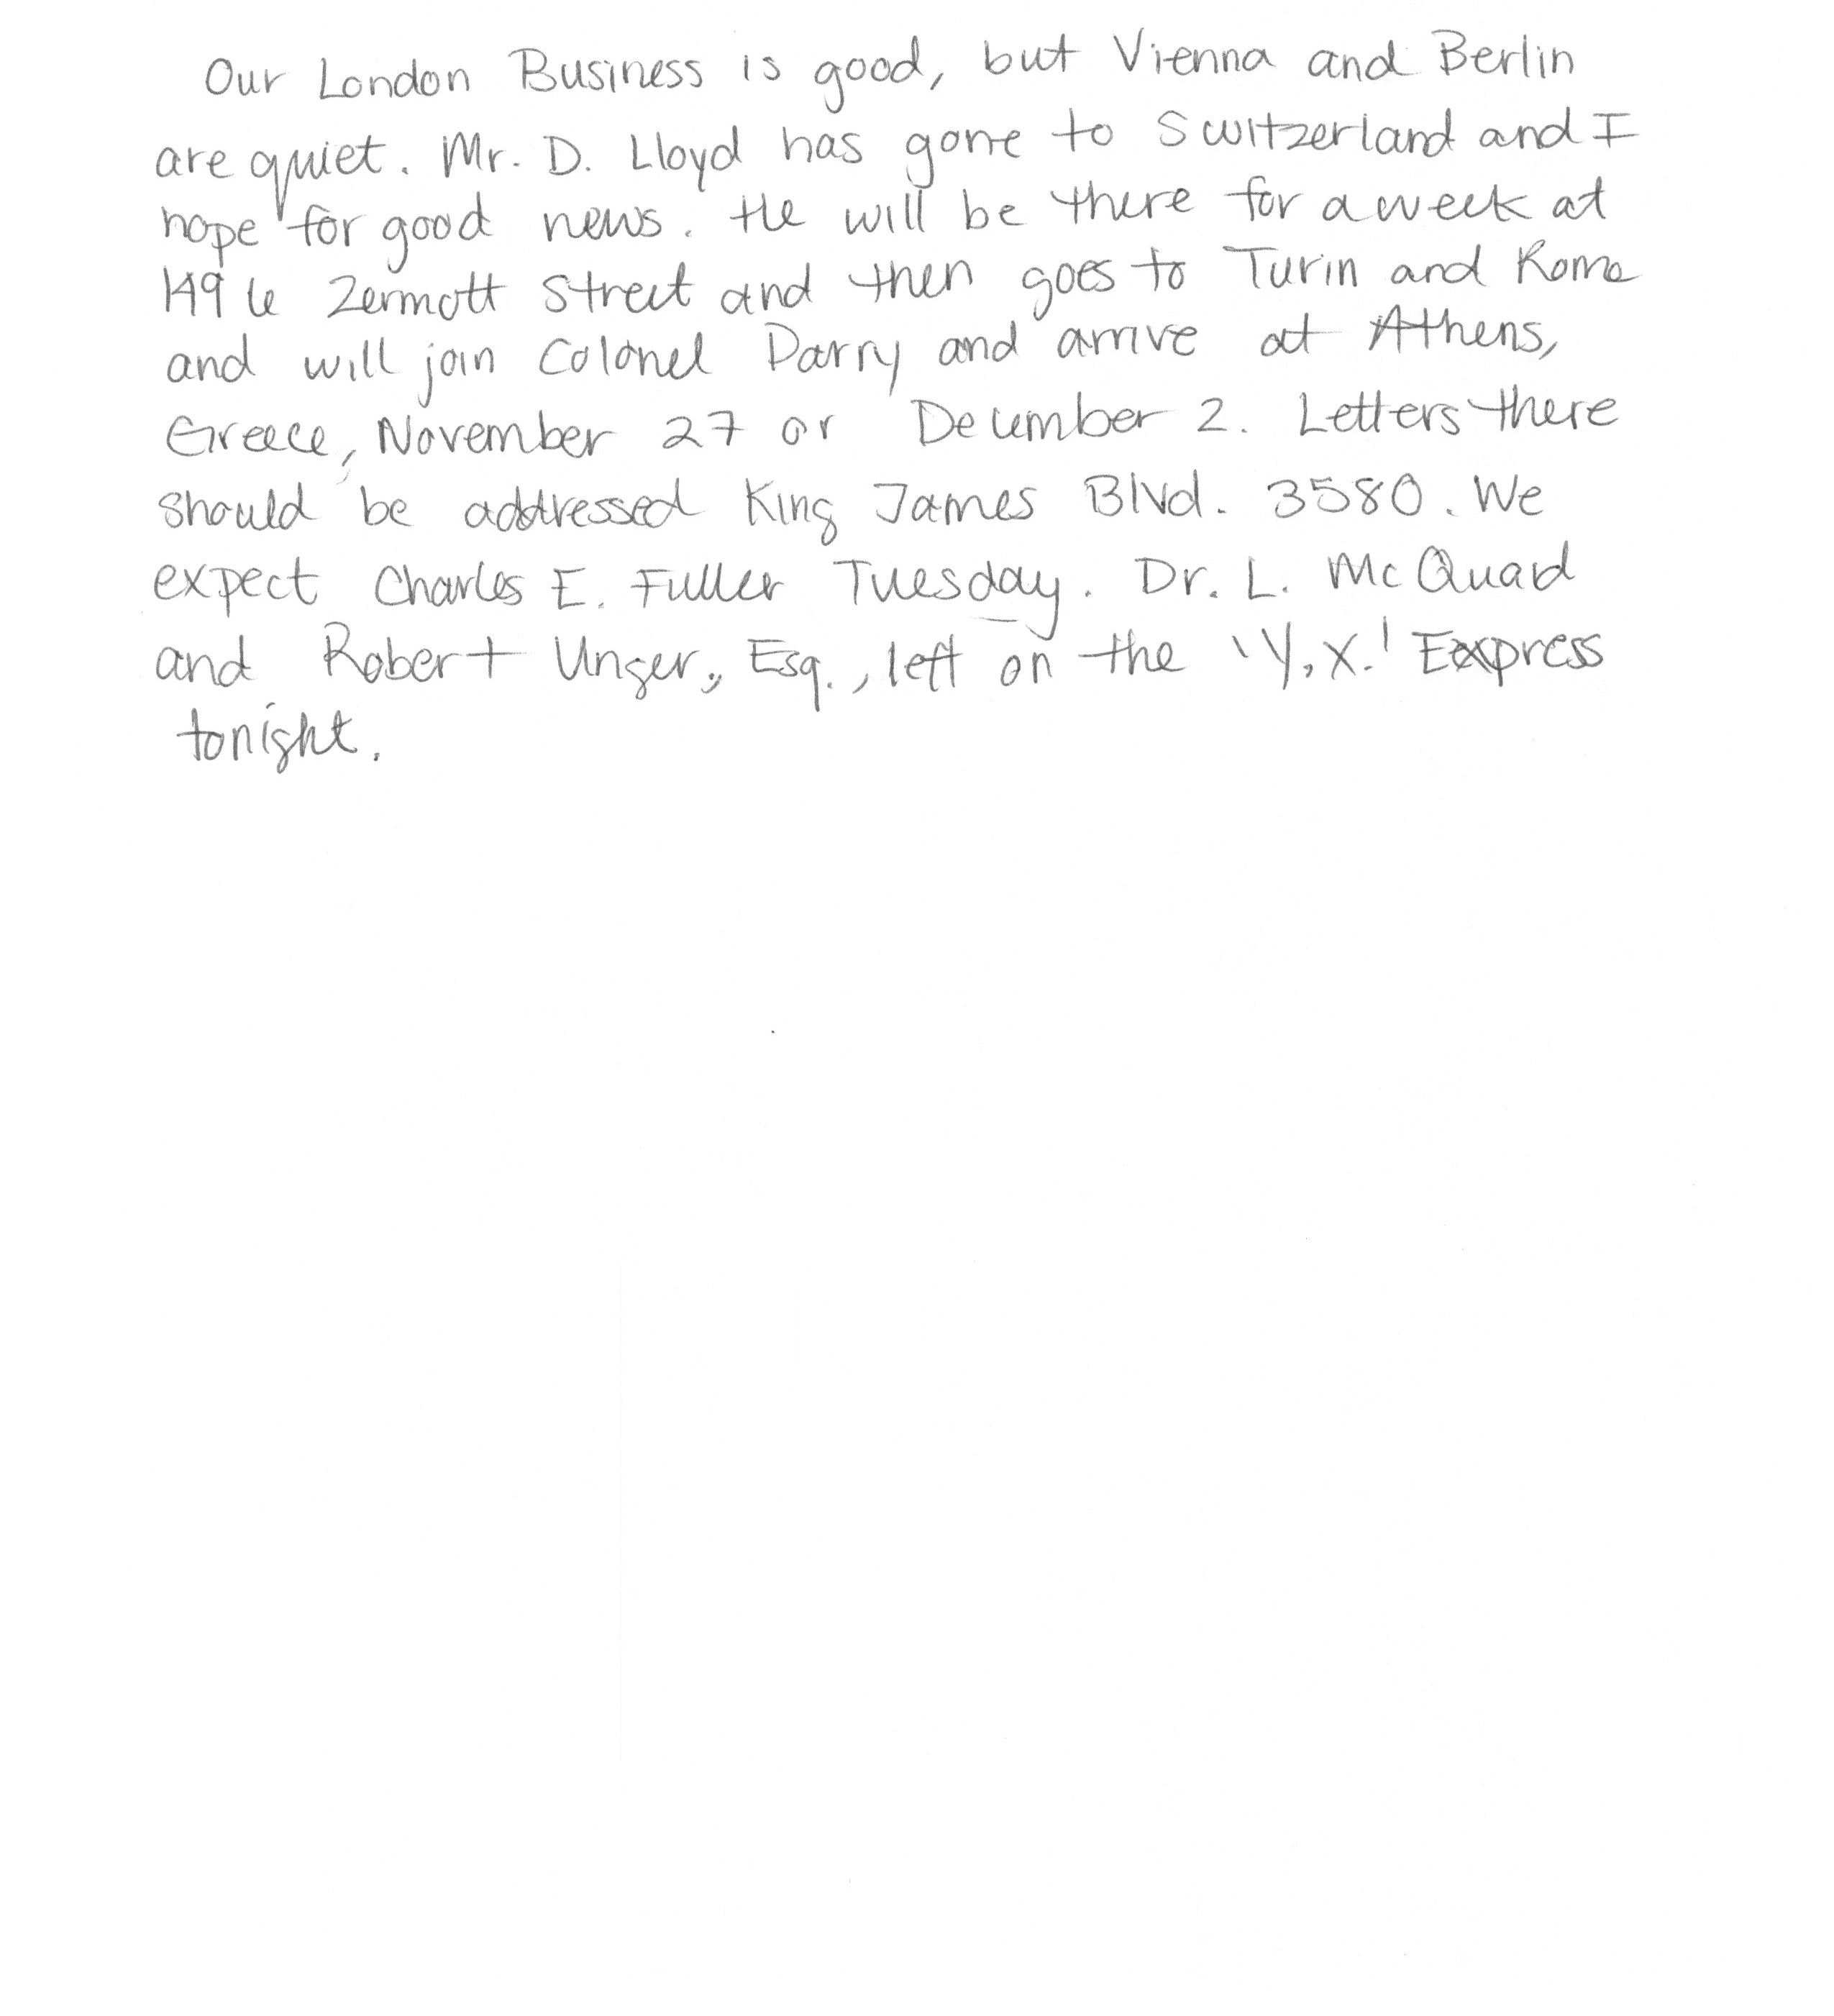 Our London Business is good, but Vienna and Berlin
are quiet. Mr. D. Lloyd has gone to Switzerland and I
hope for good news. He will be there for a week at
1496 Zermott Street and then goes to Turin and Rome
and will join Colonel Parry and arrive at Athens,
Greece, November 27 or December 2. Letters there
should be addressed King James Blvd. 3580. We
expect Charles E. Fuller Tuesday. Dr. L. McQuaid
and Robert Unger, Esq., left on the 'Y.X.' Express
tonight.